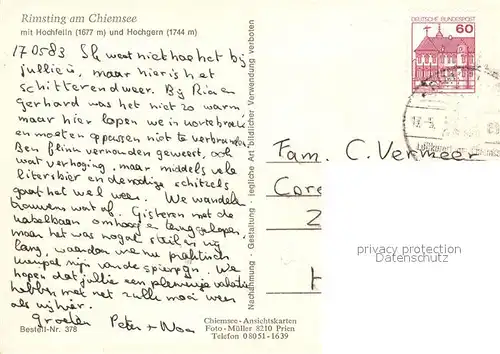 Rimsting am Chiemsee
mit Hochfelln (1677 m) und Hochgern (1744 m)
170583 Ik weet niet hoe het bij
jullie is, maar hier is het
schitterend weer. Bij Ria en
gerhard was het niet zo warm
maar hier lopen we in korte broek
en moeten oppassen niet te verbranden
Ben flink verhouden geweest, ook
wat verhoging, maar middels vele
liters bier en de nodige schnitzels
gaat het wel weer. We wandelen
trouwens wat af. Gisteren met de
kabelbaan omhoog en teruggelopen,
maar het was nogal steil en nij
lang, waardoor we nu praktisch
kreupel zijn van de spierpijn. We
hopen dat jullie een plezierige vakantie
hebben met net zulk mooi weer
als wij hier.
groeten Peter +
Bestell-Nr. 378
Nachahmung - Gestaltung - jegliche Art bildlicher Verwendung verboten
Chiemsee-Ansichtskarten
Foto-Müller 8210 Prien
Telefon 08051-1639
DEUTSCHE BUNDESPOST
60
17.-5.
Fam. C. Vermeer
privacy protection
Datenschutz